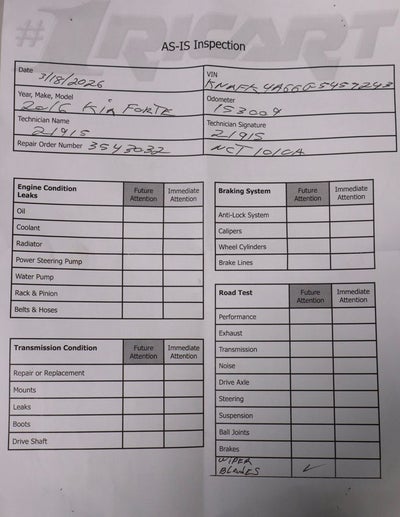 #1 RICART
AS-IS Inspection
Date 3/18/2026
VIN
KNAFK4A66G5457243
Year, Make, Model
2016 Kia FORTE
Odometer
153009
Technician Name
21915
Technician Signature
21915
Repair Order Number 3543032
NCT 101CA
Engine Condition
Leaks
Future
Attention
Immediate
Attention
Oil
Coolant
Radiator
Power Steering Pump
Water Pump
Rack & Pinion
Belts & Hoses
Braking System
Future
Attention
Immediate
Attention
Anti-Lock System
Calipers
Wheel Cylinders
Brake Lines
Transmission Condition
Future
Attention
Immediate
Attention
Repair or Replacement
Mounts
Leaks
Boots
Drive Shaft
Road Test
Future
Attention
Immediate
Attention
Performance
Exhaust
Transmission
Noise
Drive Axle
Steering
Suspension
Ball Joints
Brakes
WIPER
BLADES ✓